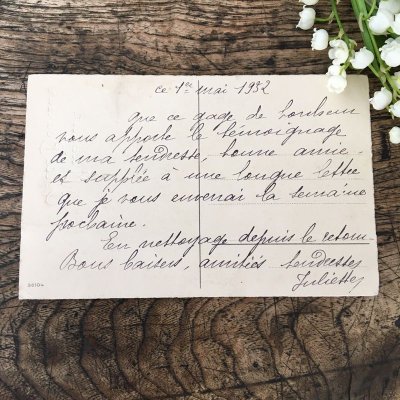 ce 1er mai 1932
Que ce gage de bonheur
vous apporte le témoignage
de ma tendresse, bonne amie
et supplée à une longue lettre
que je vous enverrai la semaine
prochaine.
En nettoyage depuis le retour.
Bons baisers, amitiés tendresses
Juliette